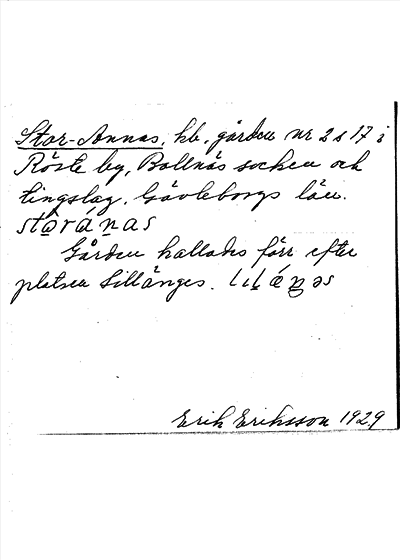 Stor-Annas, hb, gården nr 2 s 17 i
Röste by, Bollnäs socken och
tingslag, Gävleborgs län.
Gården kallades förr efter
platsen Lillänges.
Erik Eriksson 1929